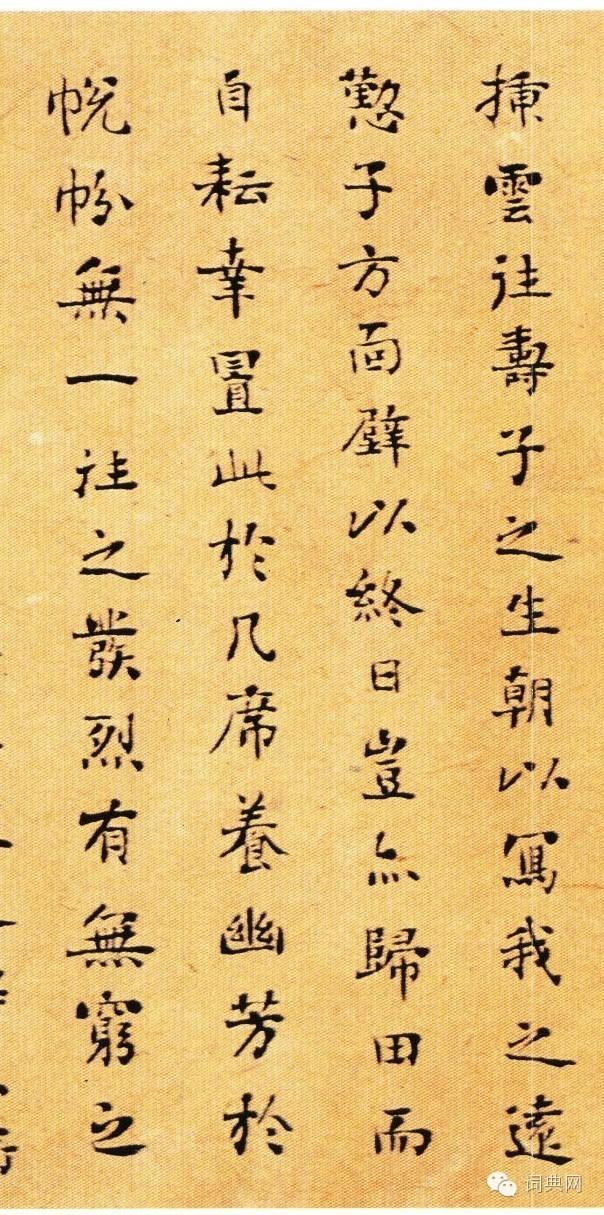 插雲往壽子之生朝以寫我之遠
懃子方面壁以終日豈亦歸田而
自耘幸置此於几席養幽芳於
帨帉無一往之發烈有無窮之
词典网